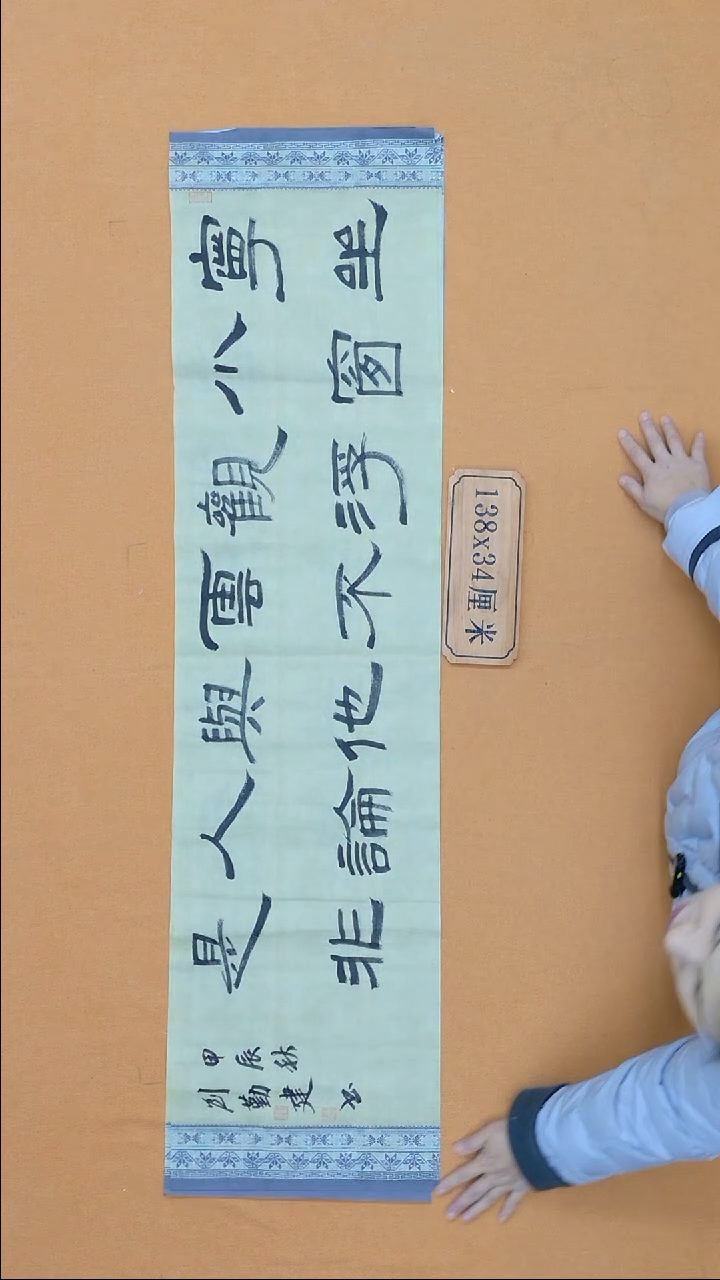 寧坐
小窗
觀浮
雲不
與他
人論
是非
甲辰秋
刘勤建书
138x34厘米